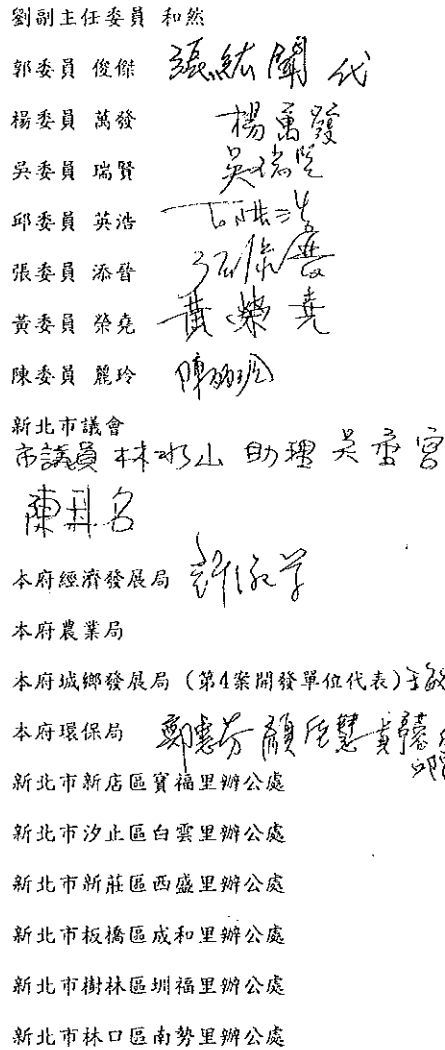 劉副主任委員 和然
郭委員 俊傑 張紘聞 代
楊委員 萬發 楊萬發
吳委員 瑞賢 吳瑞賢
邱委員 英浩
張委員 添晉 張添晉
黃委員 榮堯 黃榮堯
陳委員 麗玲 陳麗玲
新北市議會
市議員 林水山 助理 吳 宮
陳
本府經濟發展局 許
本府農業局
本府城鄉發展局（第4案開發單位代表）
本府環保局 鄭惠芬 顏 慧
新北市新店區寶福里辦公處
新北市汐止區白雲里辦公處
新北市新莊區西盛里辦公處
新北市板橋區成和里辦公處
新北市樹林區圳福里辦公處
新北市林口區南勢里辦公處